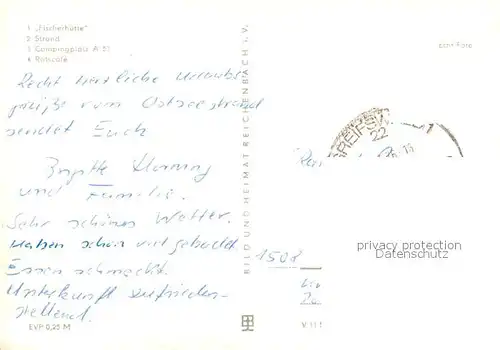 1 „Fischerhütte"
2 Strand
3 Campingplatz A 61
4 Ratscafé
Recht herzliche Urlaubs-
grüße vom Ostseestrand
sendet Euch
Brigitte
und Familie.
Sehr schönes Wetter.
Haben schon viel gebadet
Essen schmeckt.
Unterkunft zufrieden-
stellend.
EVP 0,25 M
BILD UND HEIMAT REICHENBACH i. V.
echt Foto
GREIFSW
22
1508
privacy protection
Datenschutz
V 11